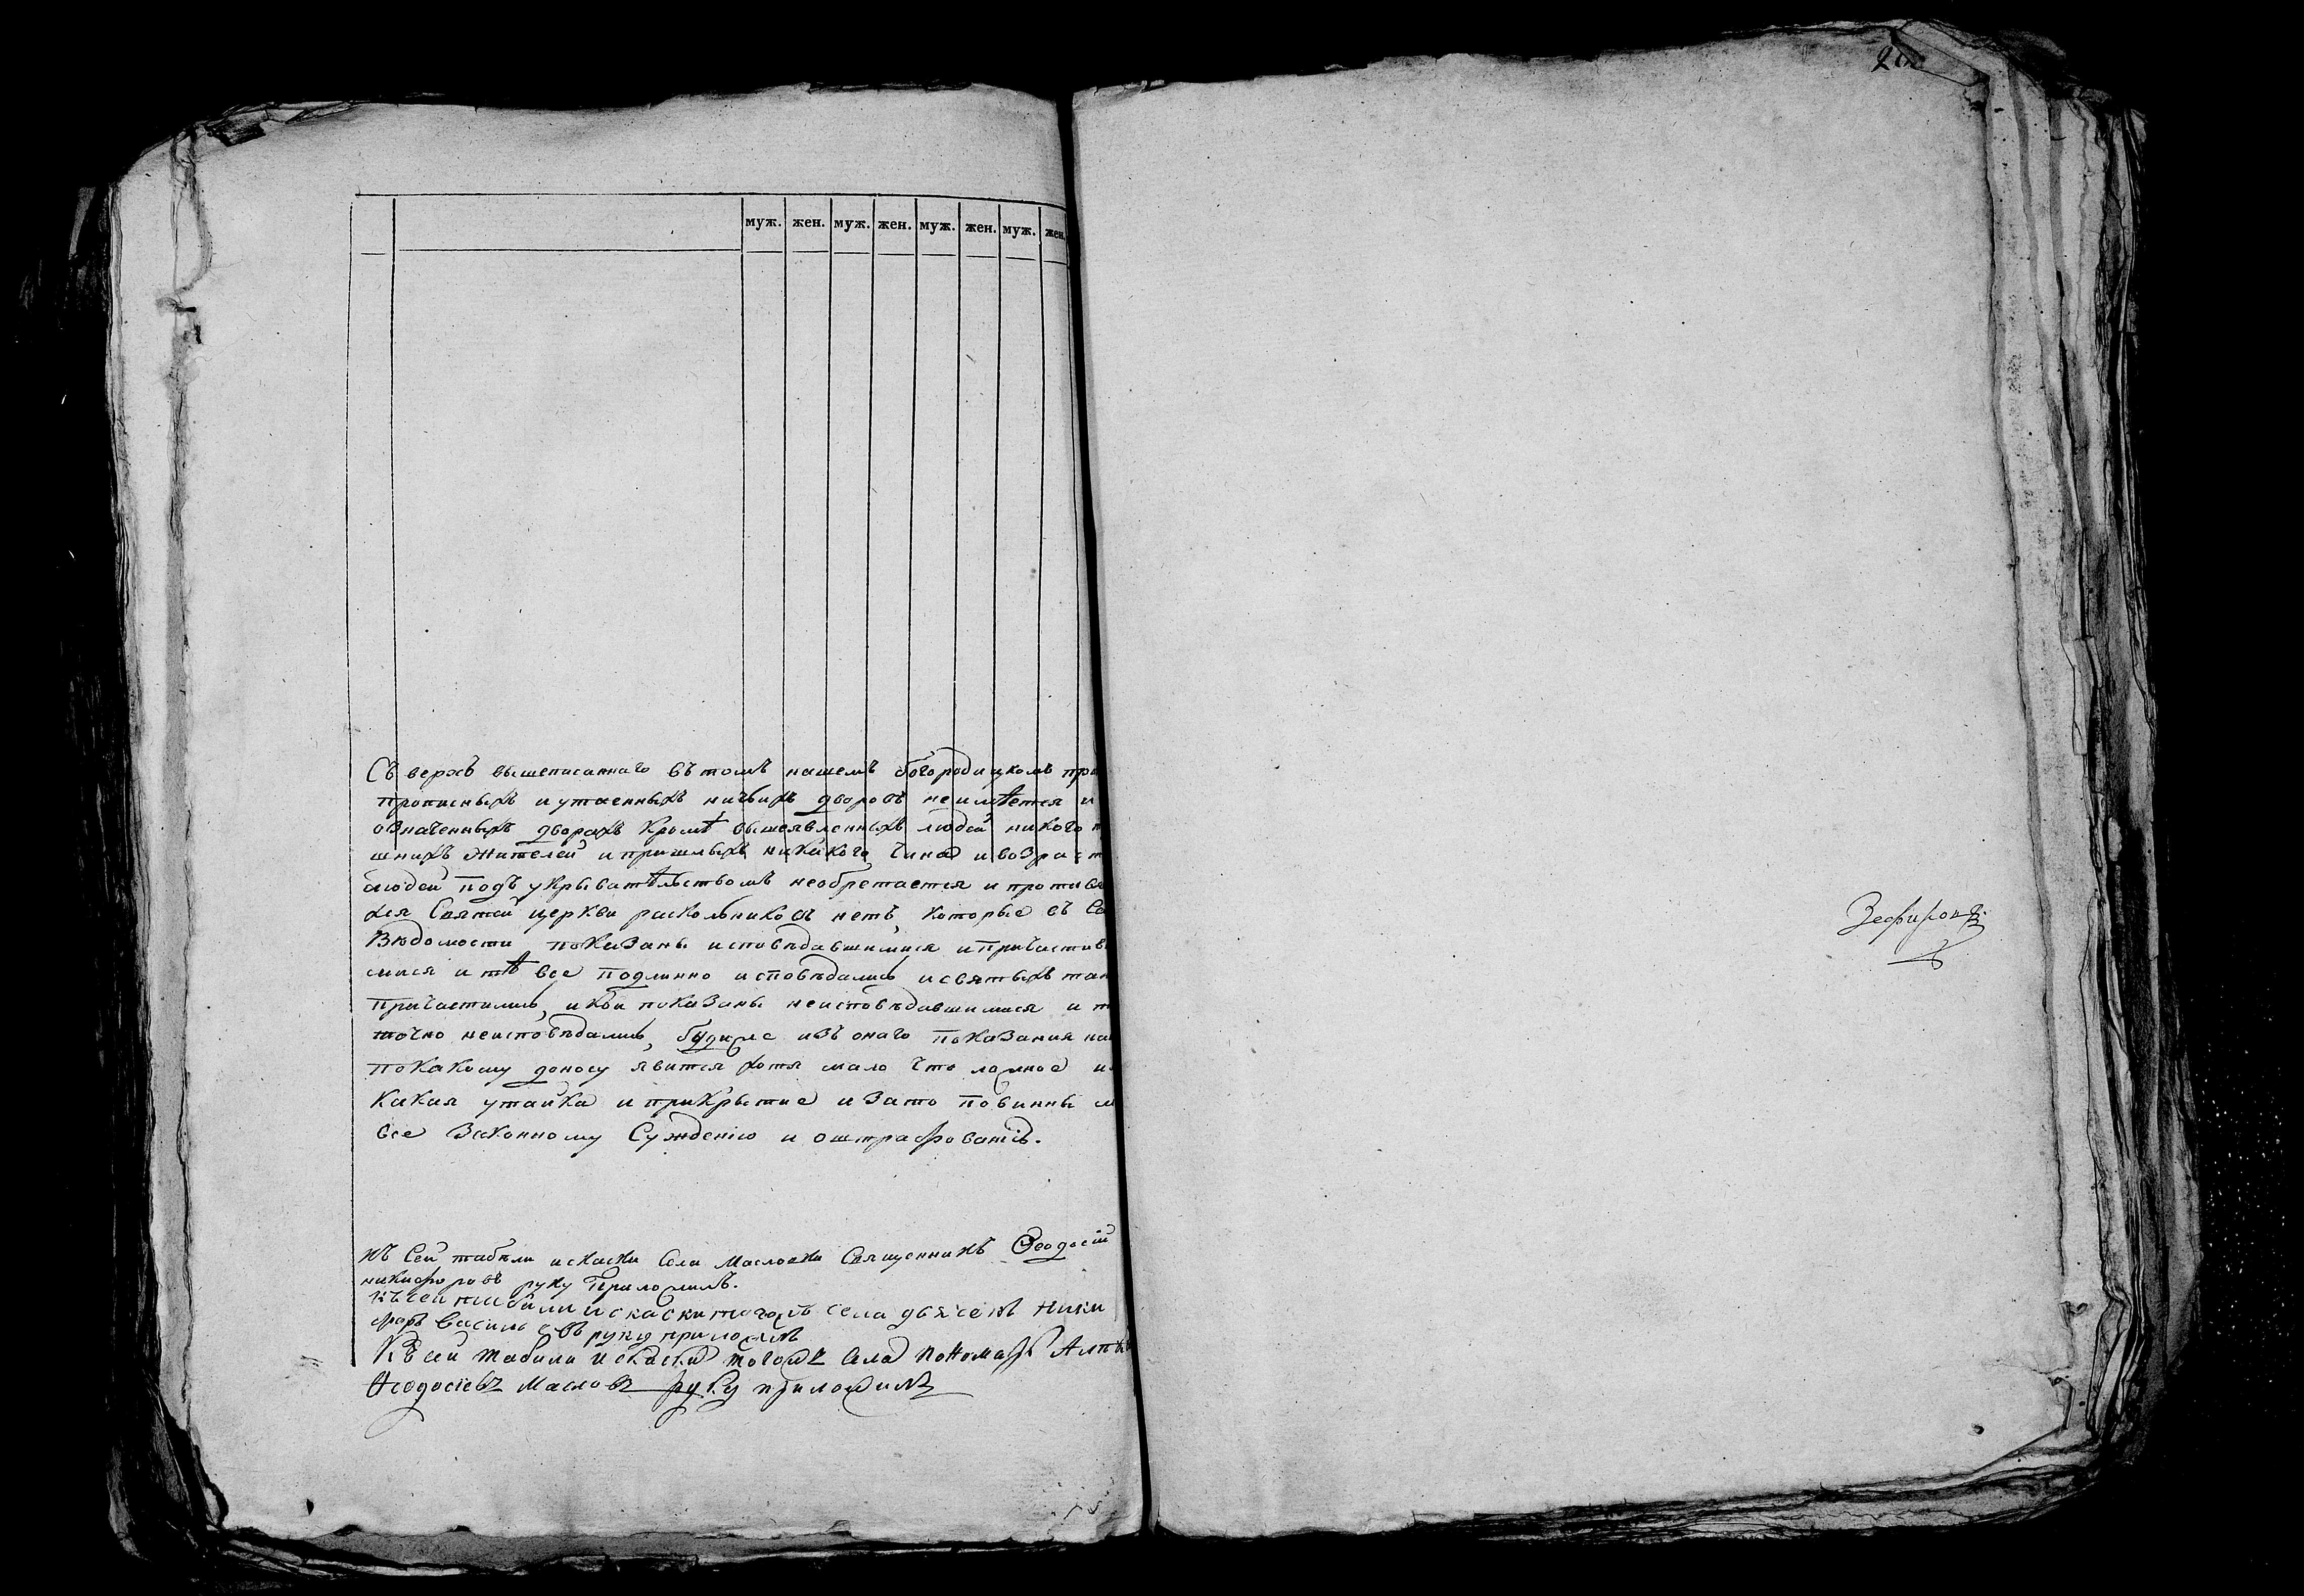 муж. жен. муж. жен. муж. жен. муж. жен.
Съ верхъ вышеписаннаго въ томъ нашемъ богородицкомъ при
прописныхъ и утаенныхъ ничьихъ дворовъ неимѣется и
означенныхъ дворахъ кромѣ вышеявленныхъ людей никого
шнихъ жителей и пришлыхъ никакого чина и возраст
людей подъ укрывательствомъ необретается и против
хся Святой церкви раскольниковъ нетъ, которые въ Се
Вѣдомости показаны исповѣдавшимися и причастив
мися и тѣ все подлинно исповѣдались и святыхъ таи
причастились, и кои показаны неисповѣдавшимися и т
точно неисповѣдались, будеже изъ онаго показания на
по какому доносу явится хотя мало что ложное и
какая утайка и прикрытие и за то повинны м
все Законному Суждению и оштрафовать.
Къ Сей табели и скаски Села Масловки Священникъ Ѳеодосій
никифоровъ руку Приложилъ.
Къ сей табили и скаски тогожъ села дьячекъ Ники
форъ Васильевъ руку приложилъ
Къ сей табили и скаски тогожъ села пономарь
Ѳеодосіевъ Масловъ руку приложилъ
Зефировъ